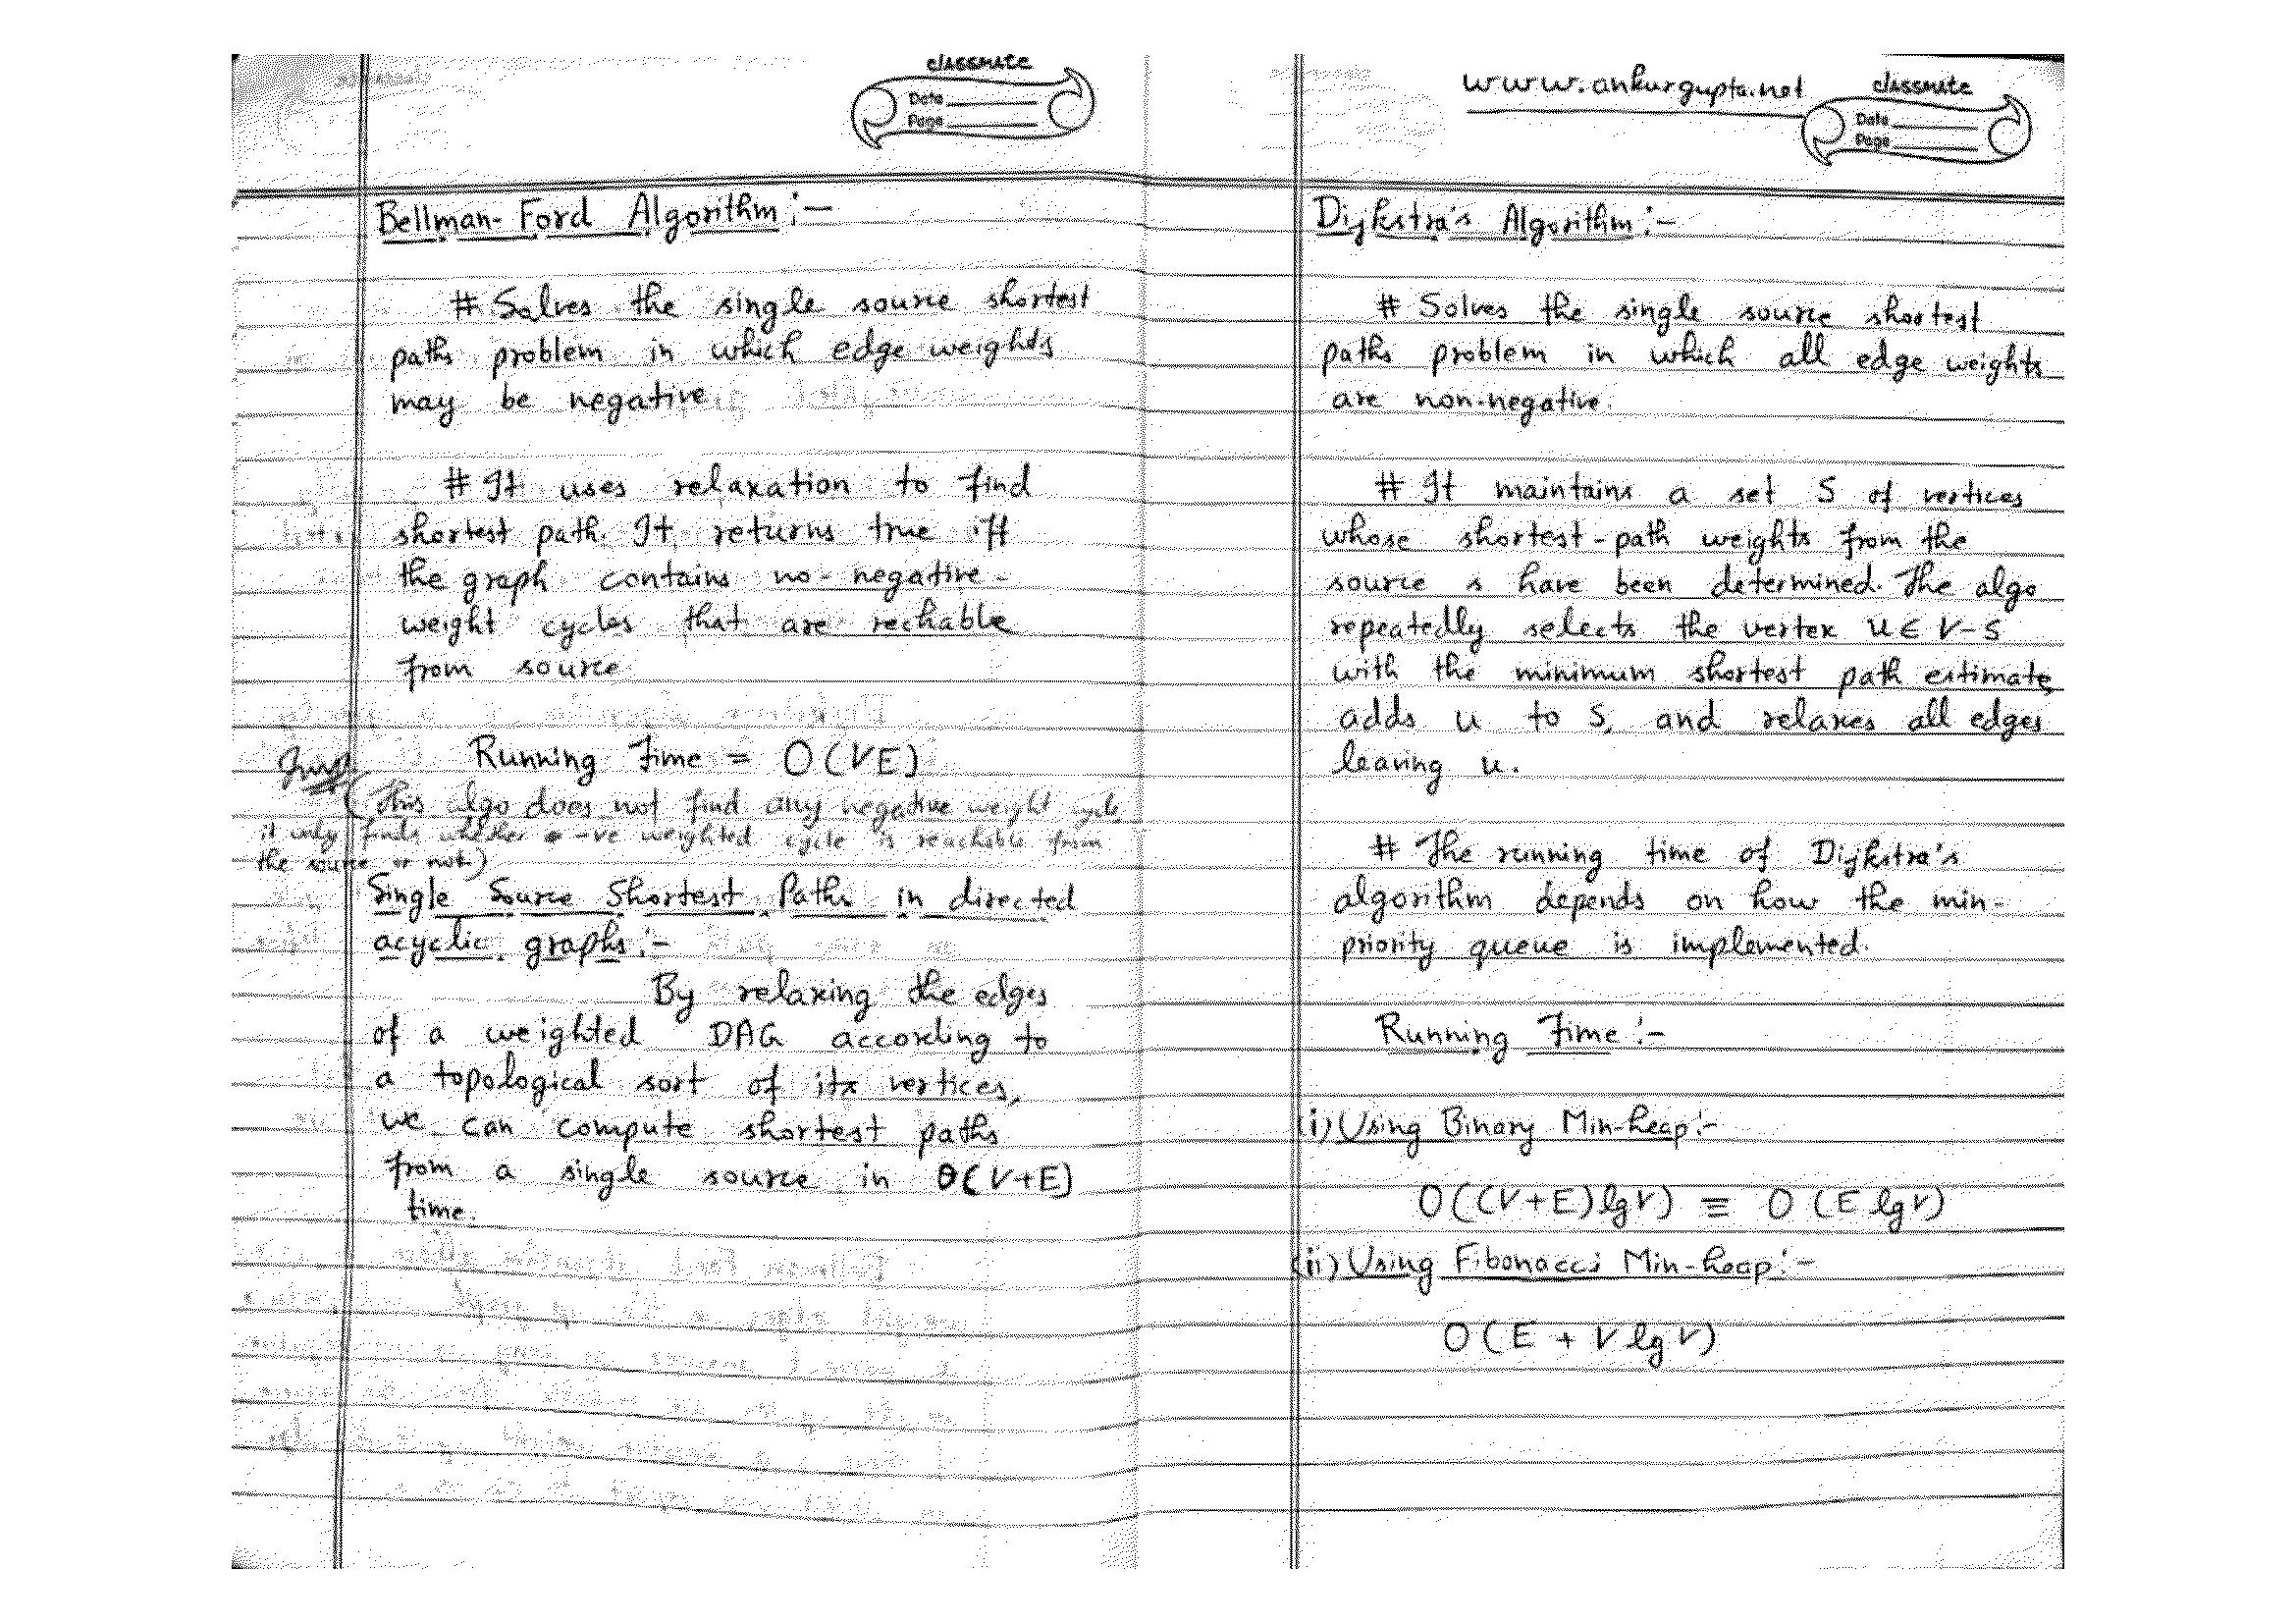 classmate
Date
Page
Bellman-Ford Algorithm :-
# Solves the single source shortest
paths problem in which edge weights
may be negative.
# It uses relaxation to find
shortest path. It returns true iff
the graph contains no-negative-
weight cycles that are rechable
from source.
Running Time = O(VE)
Imp.
(This algo does not find any negative weight cycle
it only finds whether a -ve weighted cycle is reachable from
the source or not.)
Single Source Shortest Paths in directed
acyclic graphs :-
By relaxing the edges
of a weighted DAG according to
a topological sort of its vertices,
we can compute shortest paths
from a single source in θ(V+E)
time.
www.ankurgupta.net
classmate
Date
Page
Dijkstra's Algorithm :-
# Solves the single source shortest
paths problem in which all edge weights
are non-negative.
# It maintains a set S of vertices
whose shortest-path weights from the
source s have been determined. The algo
repeatedly selects the vertex u ∈ V-S
with the minimum shortest path estimate,
adds u to S, and relaxes all edges
leaving u.
# The running time of Dijkstra's
algorithm depends on how the min-
priority queue is implemented.
Running Time :-
(i) Using Binary Min-heap :-
O((V+E) lg V) ≡ O (E lg V)
(ii) Using Fibonacci Min-heap :-
O(E + V lg V)